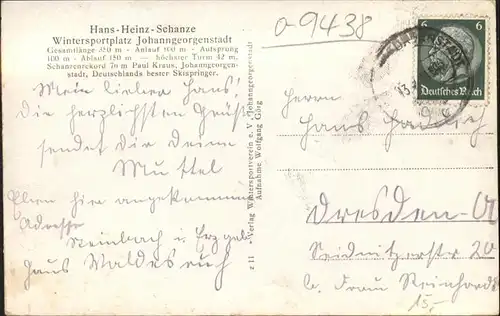 Hans-Heinz-Schanze
Wintersportplatz Johanngeorgenstadt
Gesamtlänge 350 m - Anlauf 100 m - Aufsprung
100 m - Ablauf 150 m — höchster Turm 42 m.
Schanzenrekord 70 m Paul Kraus, Johanngeorgen-
stadt, Deutschlands bester Skispringer.
09438
6 6
Deutsches Reich
Mein lieber Hans!
Die herzlichsten Grüße
sendet Dir Deine
Mutter
hier angekommen
Adresse
Steinbach i. Erzgeb.
Haus Waldesruh
z 11 - Verlag Wintersportverein e. V. Johanngeorgenstadt
Aufnahme Wolfgang Görg
Herrn
Hans
Dresden-A
Seidnitzerstr 20
b. Frau Reinhardt
15,-